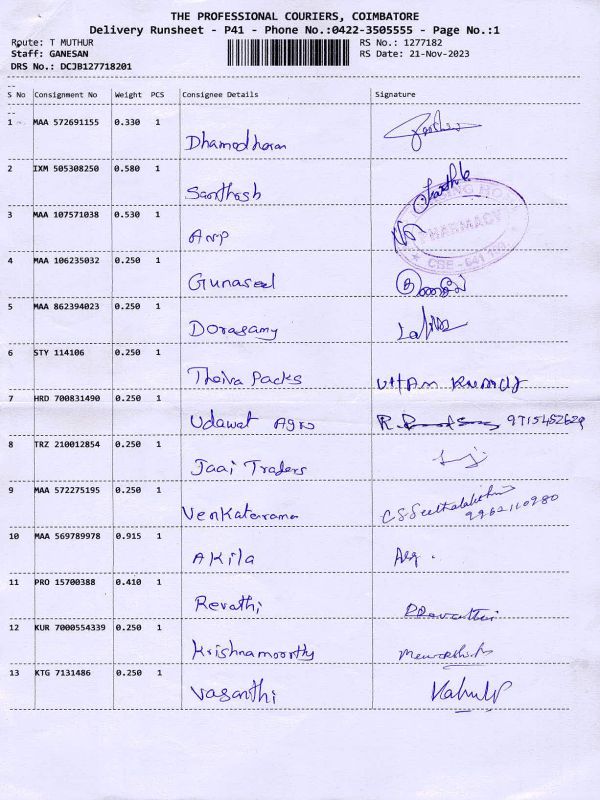 THE PROFESSIONAL COURIERS, COIMBATORE
Delivery Runsheet - P41 - Phone No.:0422-3505555 - Page No.:1
Route: T MUTHUR RS No.: 1277182
Staff: GANESAN RS Date: 21-Nov-2023
DRS No.: DCJB127718201
S No Consignment No Weight PCS Consignee Details Signature
1 MAA 572691155 0.330 1
Dhamodharan
2 IXM 505308250 0.580 1
Santhosh
3 MAA 107571038 0.530 1
PHARMACY
Arvp
CBE - 641
4 MAA 106235032 0.250 1
Gunaseel
5 MAA 862394023 0.250 1
Dorasamy
6 STY 114106 0.250 1
Theiva Packs UttAm Kumar
7 HRD 700831490 0.250 1
Udawat Agro R.
8 TRZ 210012854 0.250 1
Jaai Traders
9 MAA 572275195 0.250 1
Venkatarama C.S.Seethalakshmi
9962110980
10 MAA 569789978 0.915 1
Akila
11 PRO 15700388 0.410 1
Revathi
12 KUR 7000554339 0.250 1
Krishnamoorthy
13 KTG 7131486 0.250 1
Vasanthi